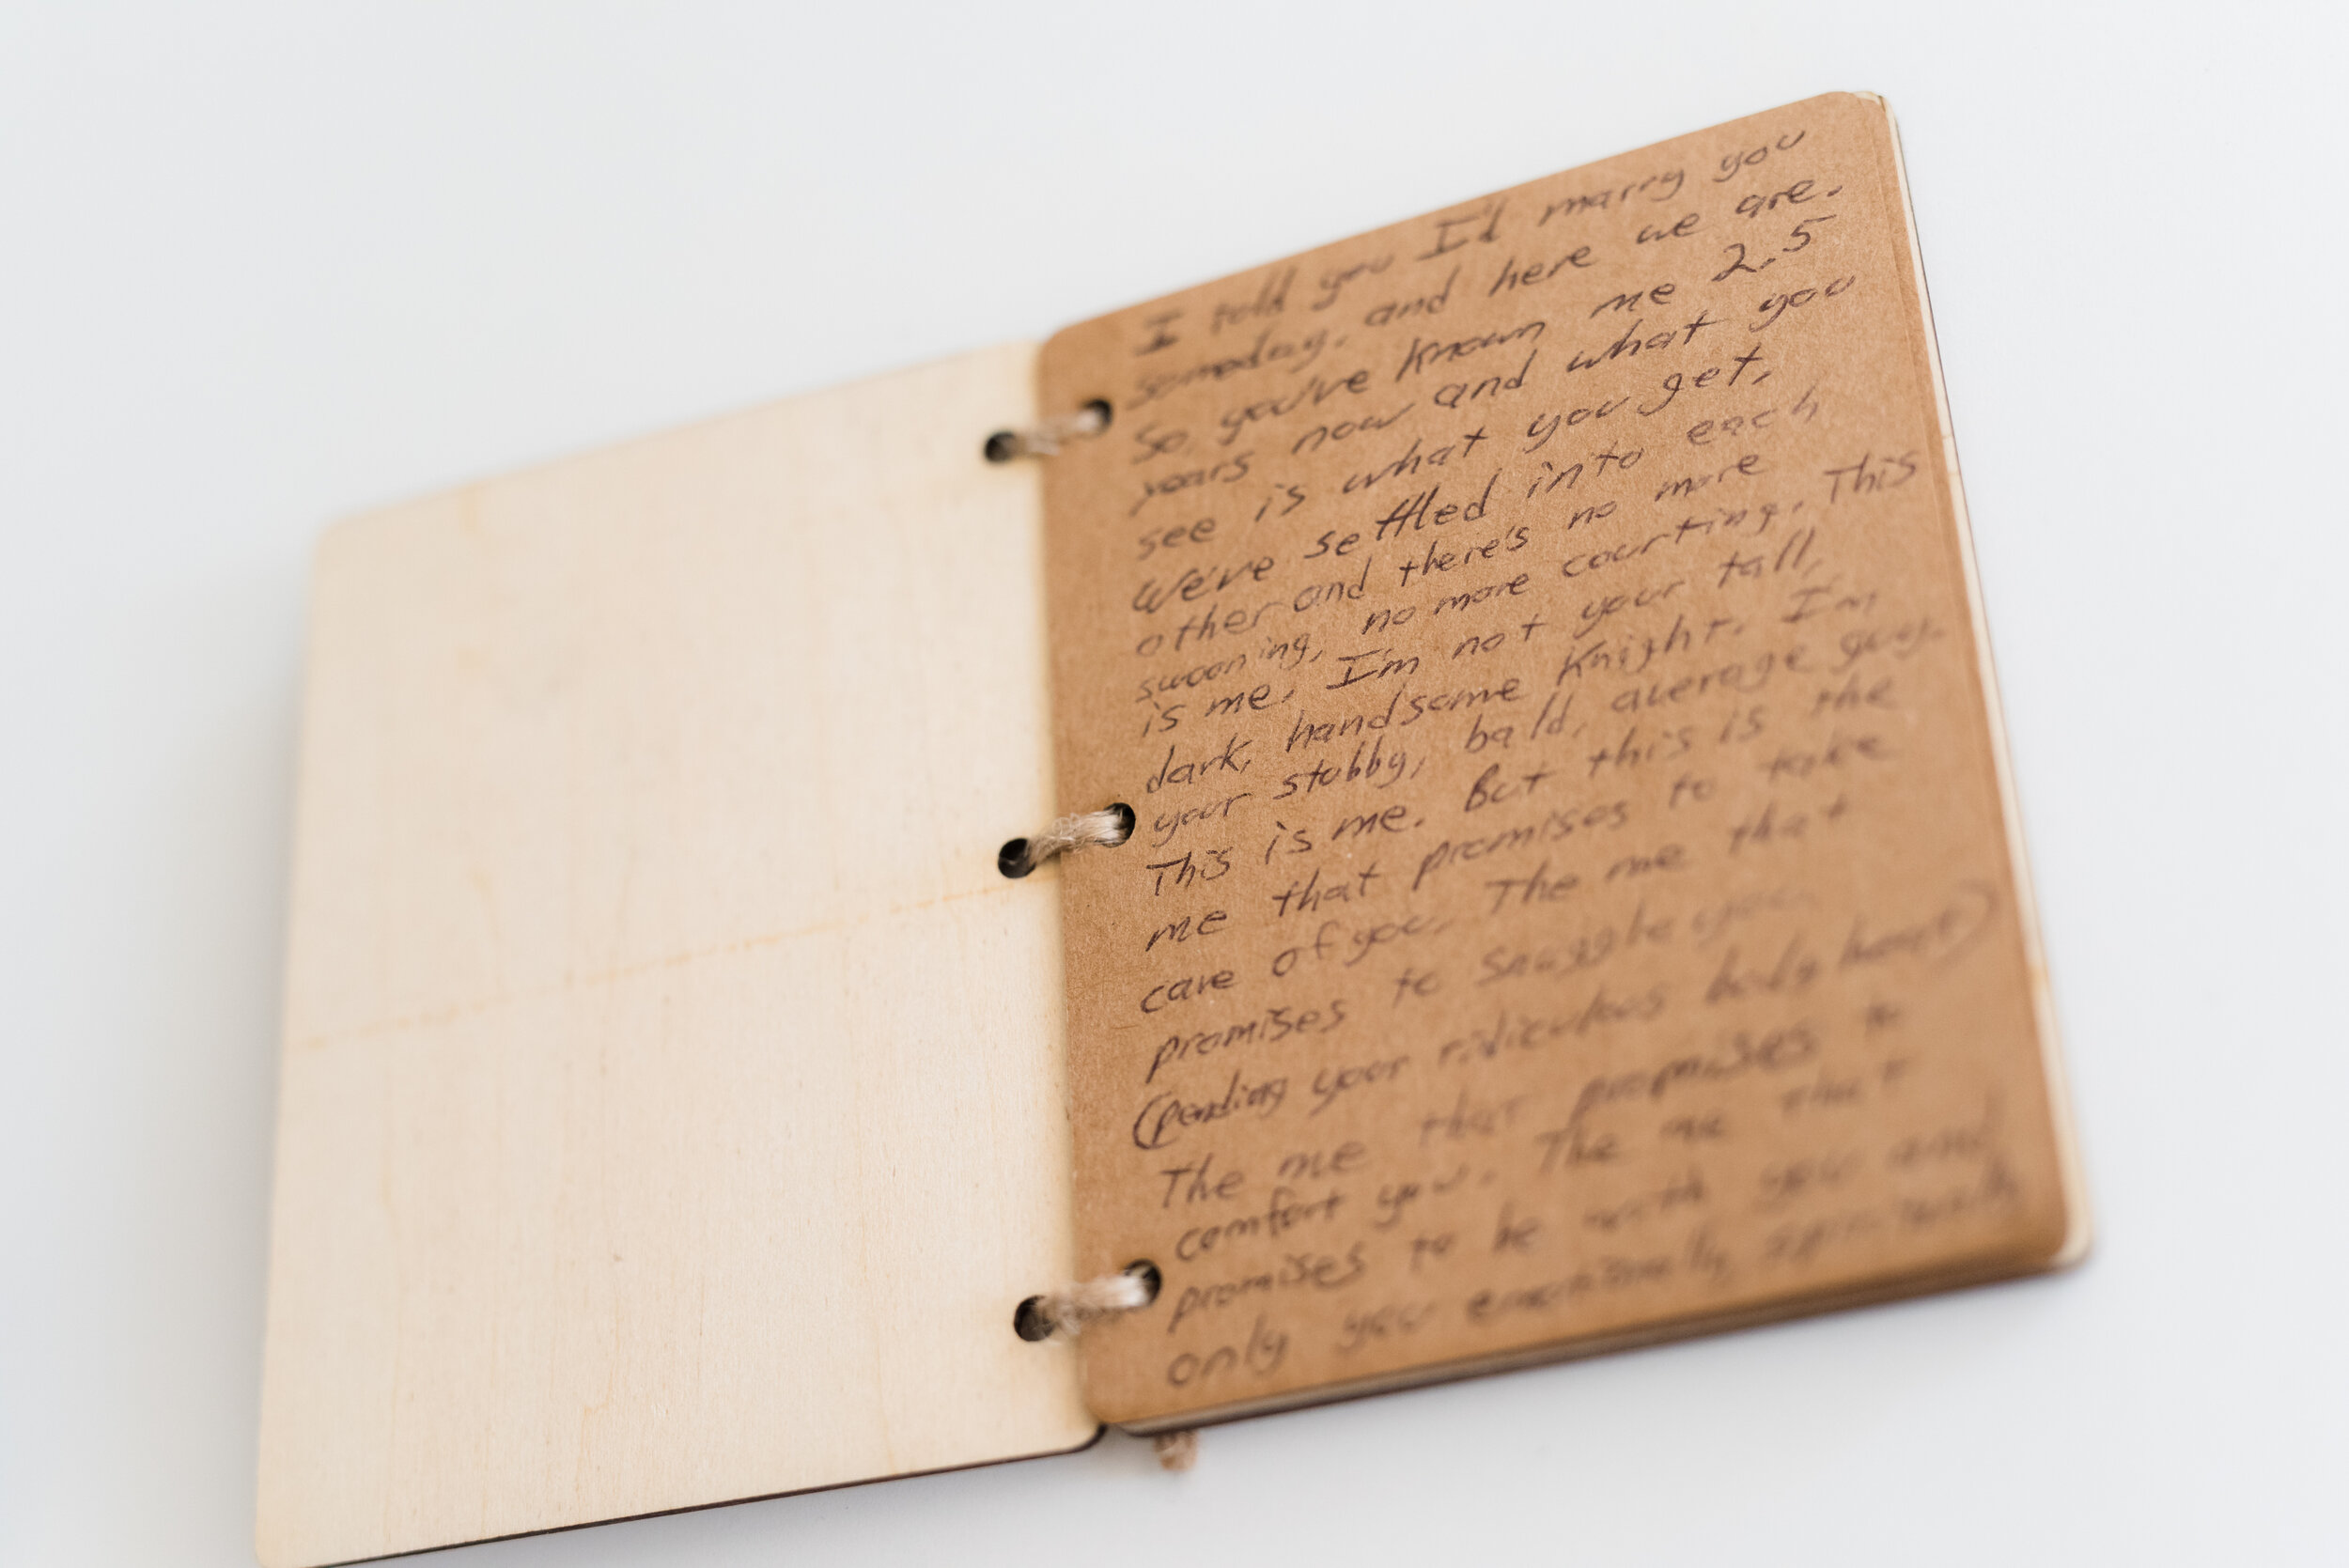 I told you I'd marry you
someday, and here we are.
So you've known me 2.5
years now and what you
see is what you get,
We've settled into each
other and there's no more
swooning, no more courting. This
is me. I'm not your tall,
dark, handsome Knight. I'm
your stubby, bald, average guy.
This is me. But this is the
me that promises to take
care of you. The me that
promises to snuggle you
(pending your ridiculous body heat)
The me that promises to
comfort you. The me that
promises to be with you and
only you emotionally, spiritually